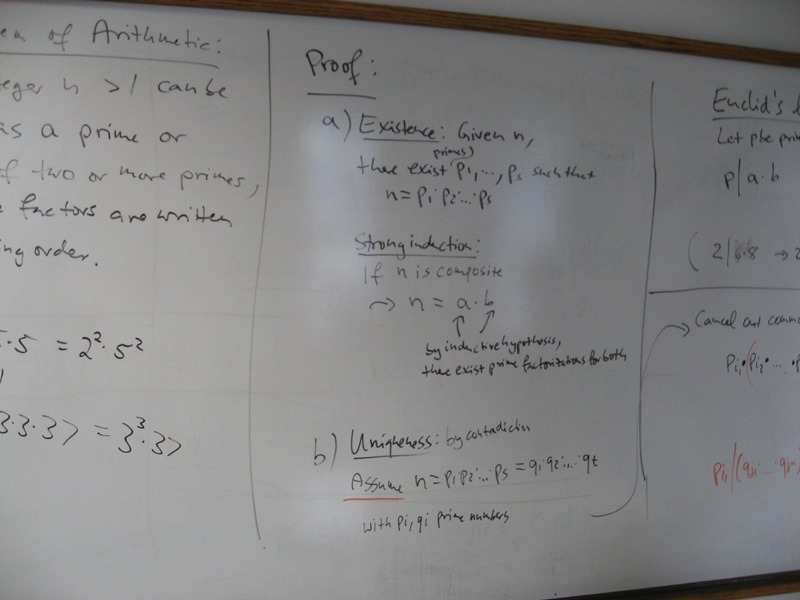 of Arithmetic:
n > 1 can be
as a prime or
two or more primes,
factors are written
order.
· 5 = 2² · 5²
3 · 3 · 37 = 3³ · 37
Proof:
a) Existence: Given n,
there exist (primes) p₁, ..., pₛ such that
n = p₁ · p₂ · ... · pₛ
Strong induction:
If n is composite
→ n = a · b
by inductive hypothesis,
there exist prime factorizations for both
b) Uniqueness: by contradiction
Assume n = p₁ p₂ ... pₛ = q₁ · q₂ · ... · qₜ
with pᵢ, qᵢ prime numbers
Euclid's
Let p be
p | a · b
( 2 | · 8 →
Cancel
pᵢ₁ · pᵢ₂ · ... ·
pᵢ₁ | (qⱼ₁ ...